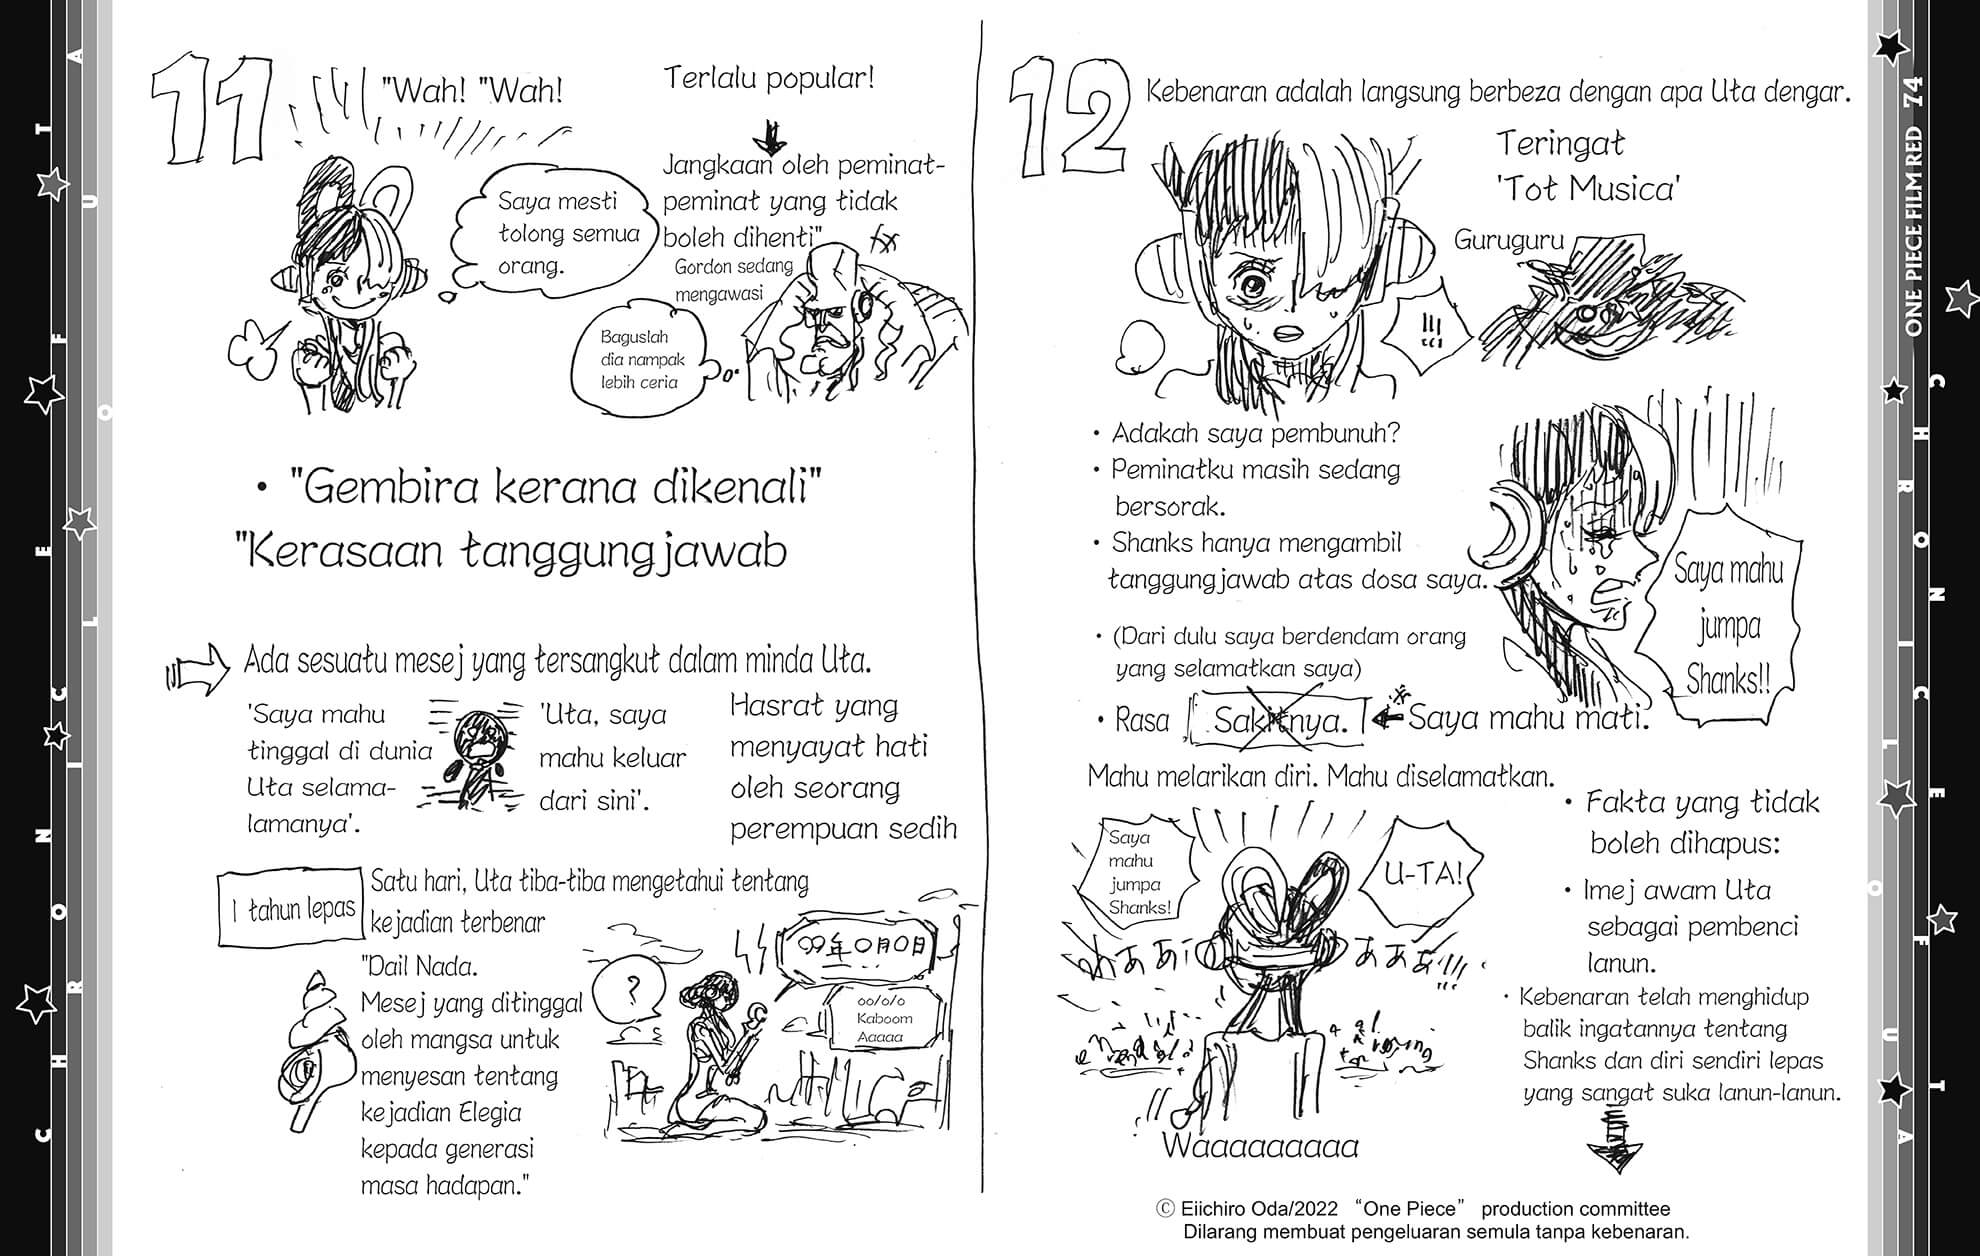 11
"Wah! "Wah!
Terlalu popular!
Jangkaan oleh peminat-
peminat yang tidak
boleh dihenti"
Saya mesti
tolong semua
orang.
Gordon sedang
mengawasi
Baguslah
dia nampak
lebih ceria
• "Gembira kerana dikenali"
"Kerasaan tanggungjawab
Ada sesuatu mesej yang tersangkut dalam minda Uta.
'Saya mahu
tinggal di dunia
Uta selama-
lamanya'.
'Uta, saya
mahu keluar
dari sini'.
Hasrat yang
menyayat hati
oleh seorang
perempuan sedih
1 tahun lepas
Satu hari, Uta tiba-tiba mengetahui tentang
kejadian terbenar
"Dail Nada.
Mesej yang ditinggal
oleh mangsa untuk
menyesan tentang
kejadian Elegia
kepada generasi
masa hadapan."
?
○○年○月○日
oo/o/o
Kaboom
Aaaaa
12
Kebenaran adalah langsung berbeza dengan apa Uta dengar.
Teringat
'Tot Musica'
Guruguru
!!!
• Adakah saya pembunuh?
• Peminatku masih sedang
bersorak.
• Shanks hanya mengambil
tanggungjawab atas dosa saya.
• (Dari dulu saya berdendam orang
yang selamatkan saya)
Saya mahu
jumpa
Shanks!!
• Rasa Sakitnya. Saya mahu mati.
Mahu melarikan diri. Mahu diselamatkan.
Saya
mahu
jumpa
Shanks!
U-TA!
あああ!!!
Waaaaaaaaa
• Fakta yang tidak
boleh dihapus:
• Imej awam Uta
sebagai pembenci
lanun.
• Kebenaran telah menghidup
balik ingatannya tentang
Shanks dan diri sendiri lepas
yang sangat suka lanun-lanun.
© Eiichiro Oda/2022 “One Piece” production committee
Dilarang membuat pengeluaran semula tanpa kebenaran.
CHRONICLE OF UTA
ONE PIECE FILM RED 74
CHRONICLE OF UTA